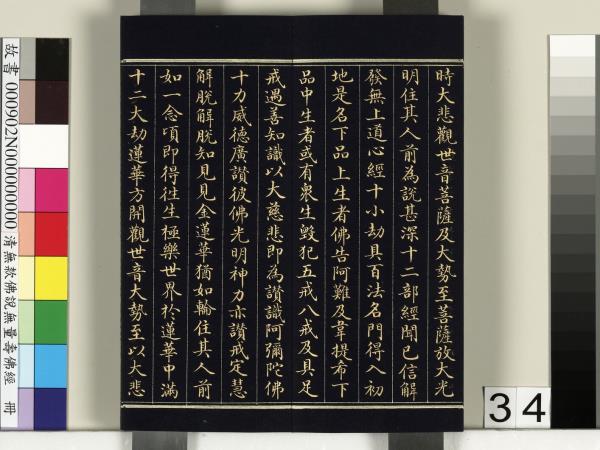 時大悲觀世音菩薩及大勢至菩薩放大光
明住其人前為說甚深十二部經聞已信解
發無上道心經十小劫具百法名門得入初
地是名下品上生者佛告阿難及韋提希下
品中生者或有衆生毀犯五戒八戒及具足
戒遇善知識以大慈悲即為讚識阿彌陀佛
十力威德廣讚彼佛光明神力亦讚戒定慧
解脫解脫知見見金蓮華猶如輪住其人前
如一念頃即得往生極樂世界於蓮華中滿
十二大劫蓮華方開觀世音大勢至以大悲
故書 000902N000000000 清無款佛說無量壽佛經 冊
34